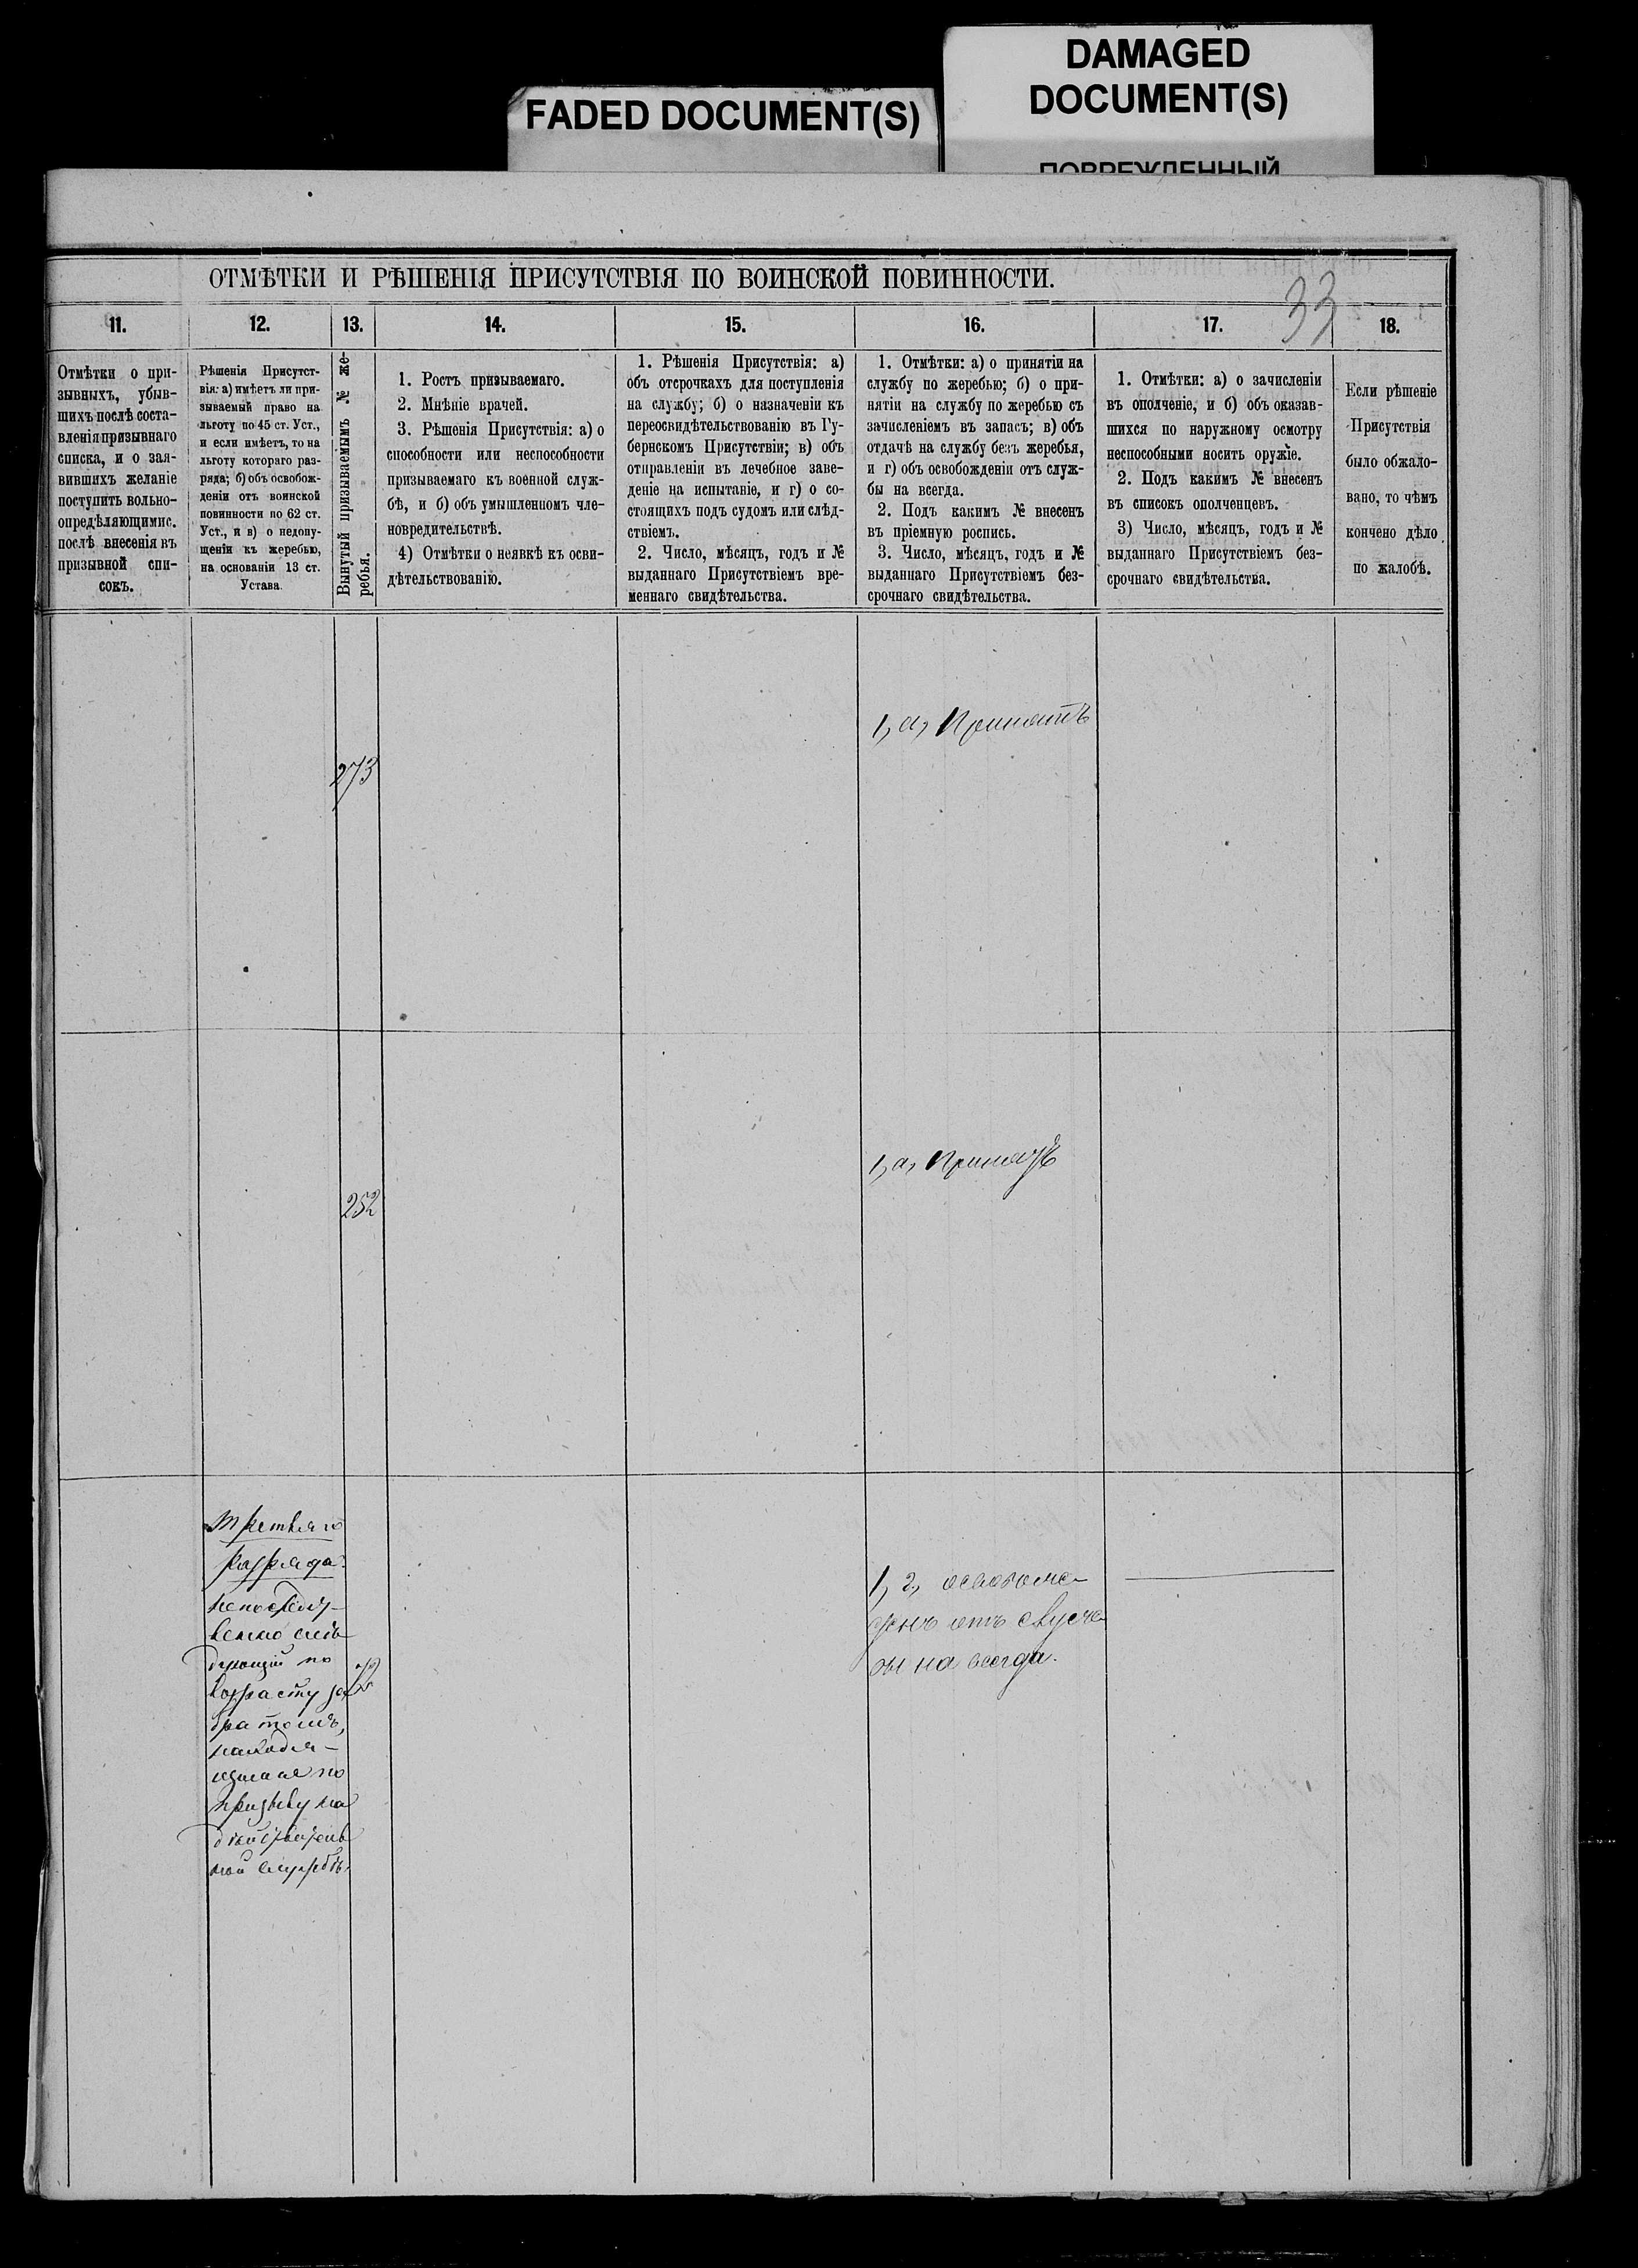 DAMAGED
DOCUMENT(S)
FADED DOCUMENT(S)
ПОВРЕЖДЕННЫЙ
ОТМѢТКИ И РѢШЕНІЯ ПРИСУТСТВІЯ ПО ВОИНСКОЙ ПОВИННОСТИ.
33
11.
12.
13.
14.
15.
16.
17.
18.
Отмѣтки о при-
зывныхъ, убыв-
шихъ послѣ соста-
вленія призывнаго
списка, и о зая-
вившихъ желаніе
поступить вольно-
опредѣляющимис.
послѣ внесенія въ
призывной спи-
сокъ.
Рѣшенія Присутст-
вія: а) имѣетъ ли при-
зываемый право на
льготу по 45 ст. Уст.,
и если имѣетъ, то на
льготу котораго раз-
ряда; б) объ освобож-
деніи отъ воинской
повинности по 62 ст.
Уст., и в) о недопу-
щеніи къ жеребью,
на основаніи 13 ст.
Устава.
Вынутый призываемымъ № же-
ребья.
1. Ростъ призываемаго.
2. Мнѣніе врачей.
3. Рѣшенія Присутствія: а) о
способности или неспособности
призываемаго къ военной служ-
бѣ, и б) объ умышленномъ чле-
новредительствѣ.
4) Отмѣтки о неявкѣ къ осви-
дѣтельствованію.
1. Рѣшенія Присутствія: а)
объ отсрочкахъ для поступленія
на службу; б) о назначеніи къ
переосвидѣтельствованію въ Гу-
бернскомъ Присутствіи; в) объ
отправленіи въ лечебное заве-
деніе на испытаніе, и г) о со-
стоящихъ подъ судомъ или слѣд-
ствіемъ.
2. Число, мѣсяцъ, годъ и №
выданнаго Присутствіемъ вре-
меннаго свидѣтельства.
1. Отмѣтки: а) о принятіи на
службу по жеребью; б) о при-
нятіи на службу по жеребью съ
зачисленіемъ въ запасъ; в) объ
отдачѣ на службу безъ жеребья,
и г) объ освобожденіи отъ служ-
бы на всегда.
2. Подъ какимъ № внесенъ
въ пріемную роспись.
3. Число, мѣсяцъ, годъ и №
выданнаго Присутствіемъ без-
срочнаго свидѣтельства.
1. Отмѣтки: а) о зачисленіи
въ ополченіе, и б) объ оказав-
шихся по наружному осмотру
неспособными носить оружіе.
2. Подъ какимъ № внесенъ
въ списокъ ополченцевъ.
3) Число, мѣсяцъ, годъ и №
выданнаго Присутствіемъ без-
срочнаго свидѣтельства.
Если рѣшеніе
Присутствія
было обжало-
вано, то чѣмъ
кончено дѣло
по жалобѣ.
1, а, Принятъ
273
1, а, Принятъ
252
Третьяго
разряда.
непосредст-
венно слѣ
дующій по
возрасту за
братомъ,
находя-
щимся по
призыву на
дѣйствитель
ной службѣ.
1, г, освобож-
денъ отъ служ
бы на всегда.